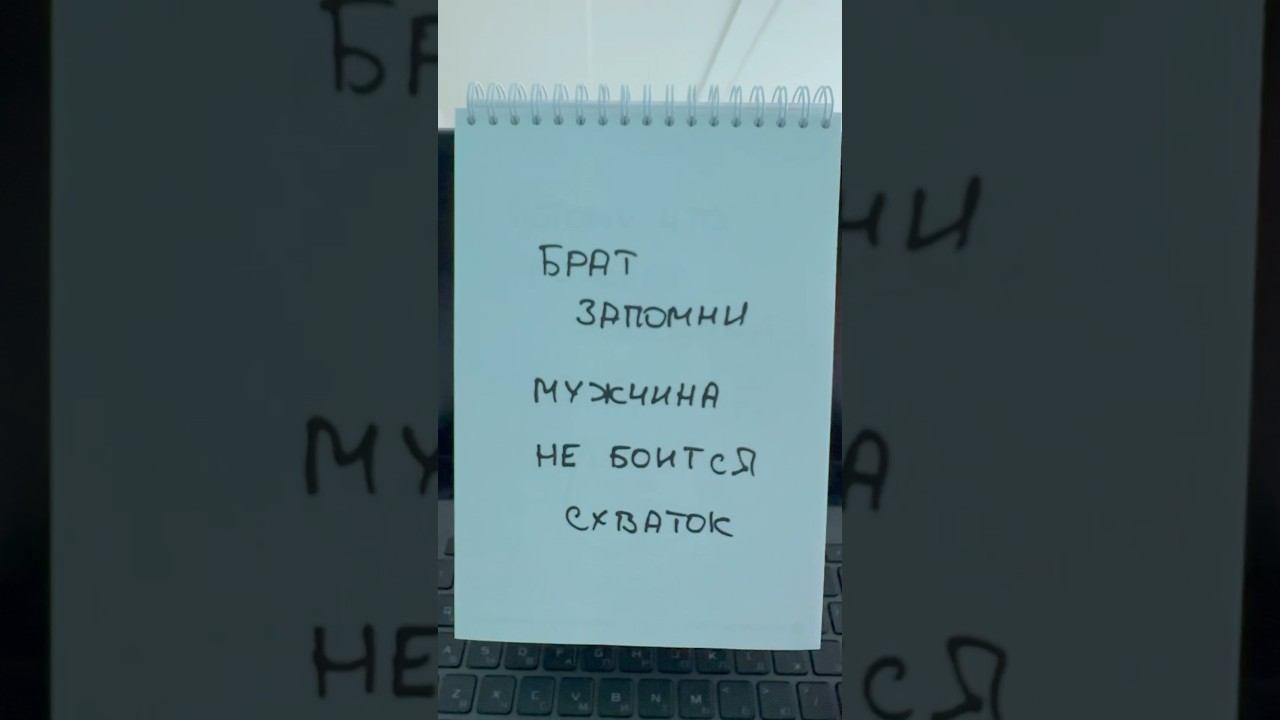 БРАТ
ЗАПОМНИ
МУЖЧИНА
НЕ БОИТСЯ
СХВАТОК